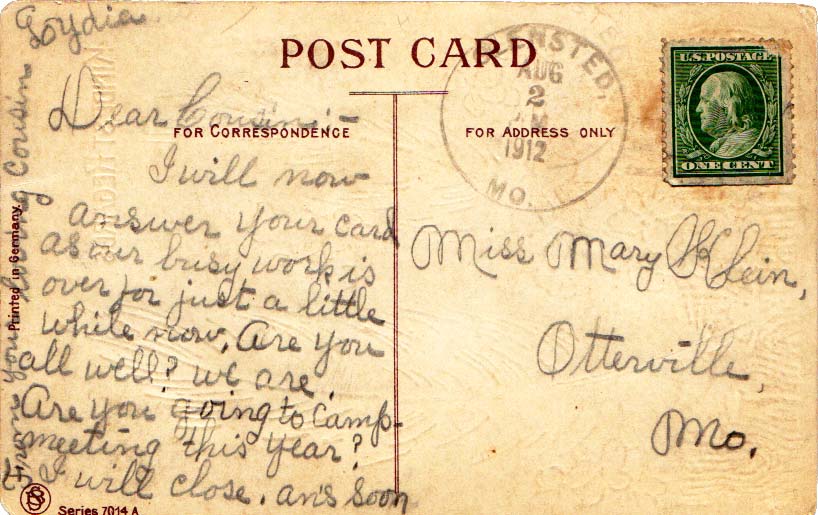 POST CARD
FOR CORRESPONDENCE
FOR ADDRESS ONLY
Dear Cousin:-
I will now
answer your card
as our busy work is
over for just a little
while now, Are you
all well? we are.
Are you going to Camp-
meeting this year?
I will close. ans soon
From your loving Cousin
Lydia
Miss Mary Klein,
Otterville,
Mo.
AUG
2
1912
MO.
U.S. POSTAGE
ONE CENT
Printed in Germany.
Series 7014 A